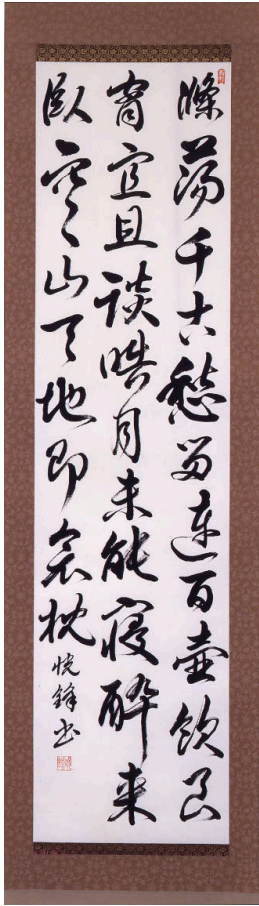 滌蕩千古愁留連百壺飲良
宵宜且談晧月未能寢酔来
臥空山天地即衾枕
悦鋒書